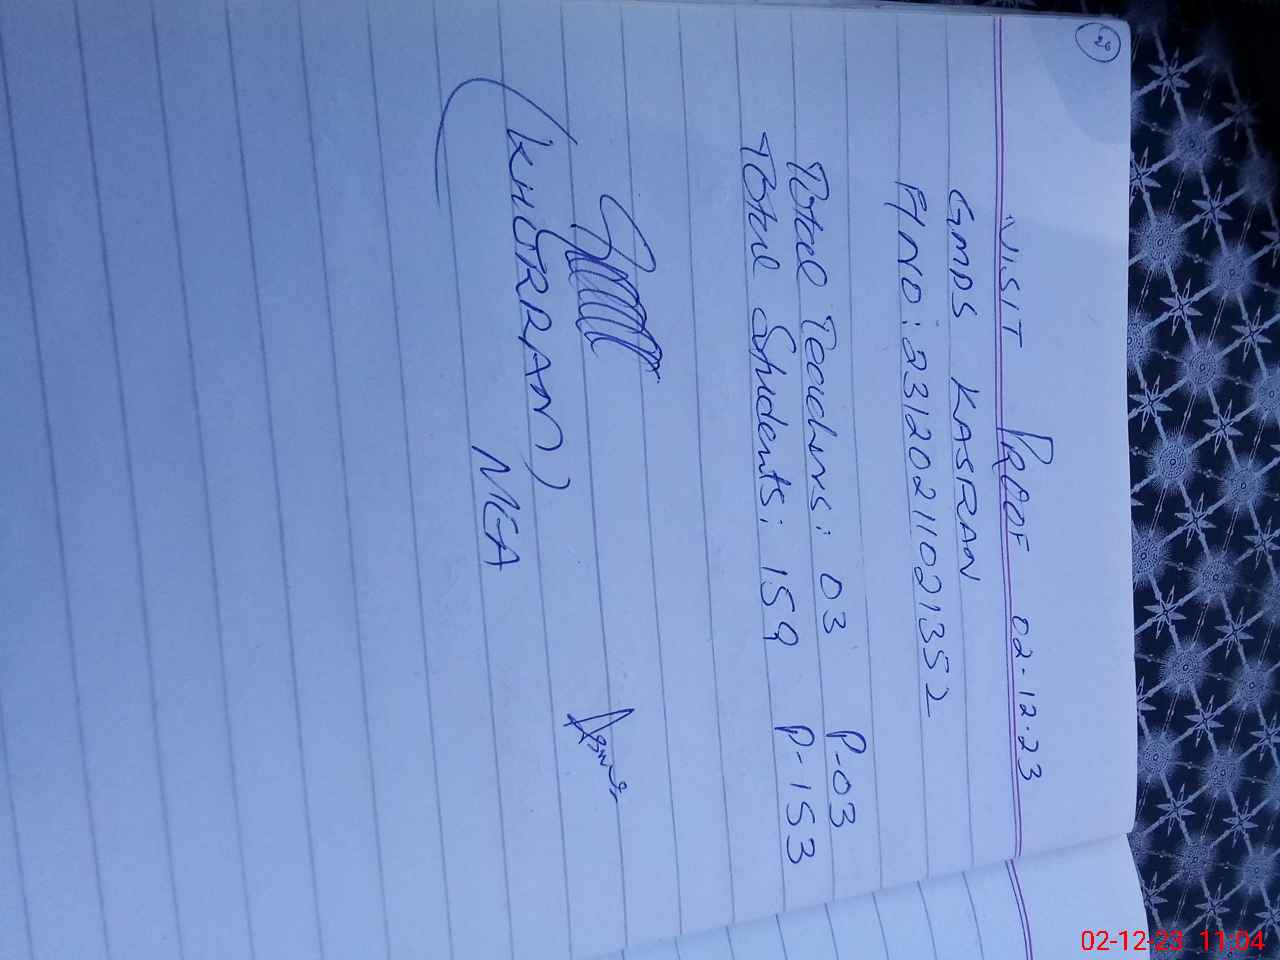 26
"VISIT PROOF 02-12-23
GMPS KASRAN
A/NO: 23120211021352
Total Teachers: 03 P-03
Total Students: 159 P-153
(KHURRAM)
MEA
02-12-23 11:04